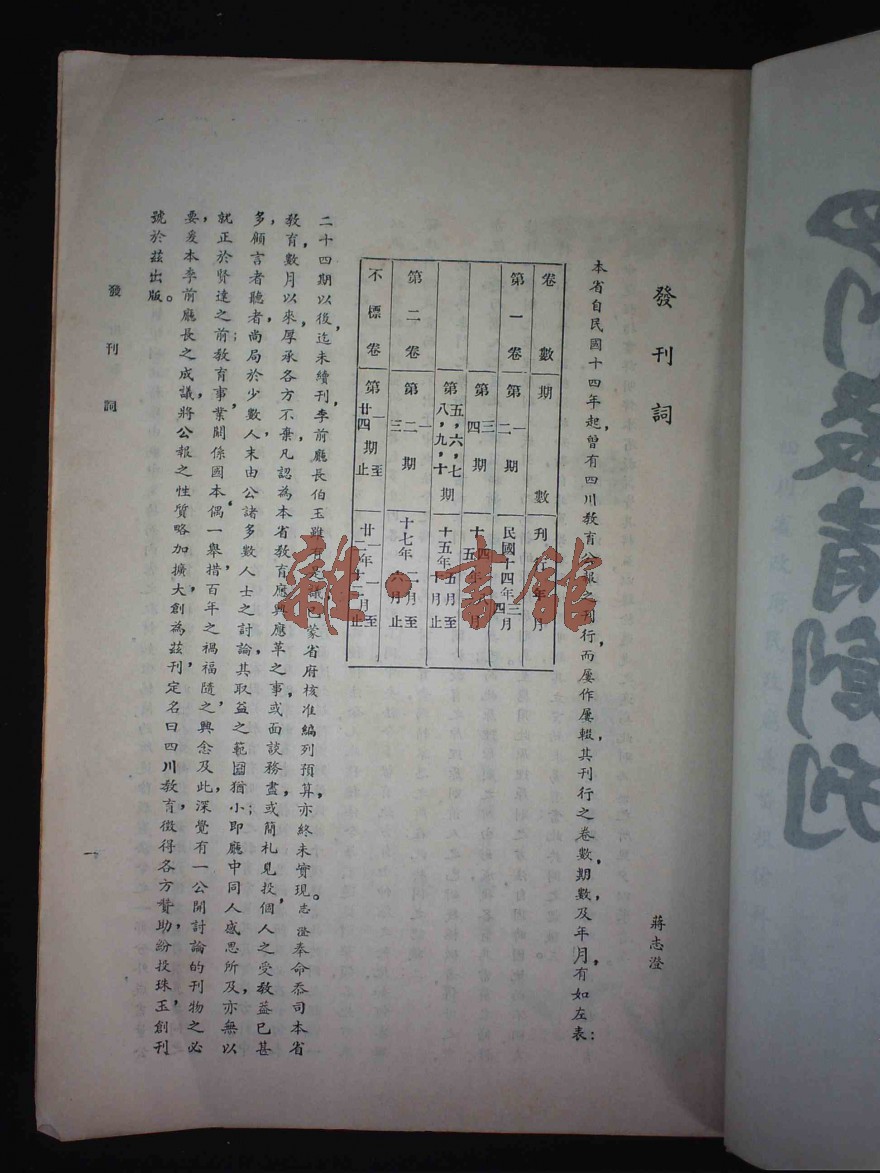 發刊詞
蔣志澄
本省自民國十四年起，曾有四川教育公報之刊行，而屢作屢輟，其刊行之卷數，期數，及年月，有如左表：
卷數 期數 刊行年月
第一卷 第一二期 民國十四年三四月
第三四期
第五，六，七八，九，十期 十五年五月至十月止
第二卷 第一二三期 十七年
不標卷 第一至廿四期止
二十四期以後，迄未續刊，李前廳長伯玉雖有是議，已蒙省府核准編列預算，亦終未實現。志澄奉命忝司本省
教育，數月以來，厚承各方不棄，凡認為本省教育應興應革之事，或面談務盡，或簡札見投，個人之受教益已甚
多，顧言者聽者，尚局於少數人，未由公諸多數人士之討論，其取益之範圍猶小；即廳中同人感思所及，亦無以
就正於賢達之前；教育事業，關係國本，偶一舉措，百年之禍福隨之，興念及此，深覺有一公開討論的刊物之必
要，爰本李前廳長之成議，將公報之性質略加擴大，創為茲刊，定名曰四川教育，徵得各方贊助，紛投珠玉，創刊
號於茲出版。
發刊詞
一
雜·書館
創刊